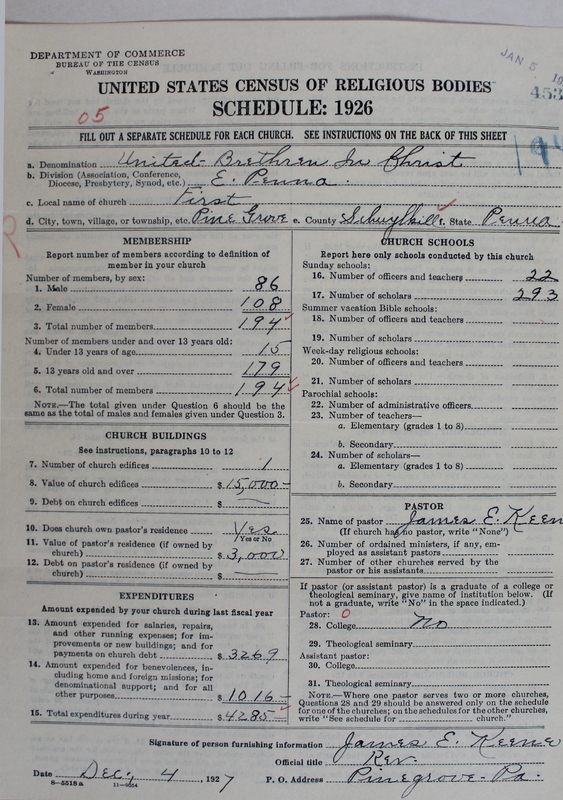 DEPARTMENT OF COMMERCE
BUREAU OF THE CENSUS
WASHINGTON
JAN 5 19
453
UNITED STATES CENSUS OF RELIGIOUS BODIES
SCHEDULE: 1926
05
FILL OUT A SEPARATE SCHEDULE FOR EACH CHURCH. SEE INSTRUCTIONS ON THE BACK OF THIS SHEET
a. Denomination United-Brethren In Christ
b. Division (Association, Conference,
Diocese, Presbytery, Synod, etc.) E. Penna.
c. Local name of church First
d. City, town, village, or township, etc. Pine Grove e. County Schuylkill f. State Penna
MEMBERSHIP
Report number of members according to definition of
member in your church
Number of members, by sex:
1. Male 86
2. Female 108
3. Total number of members 194
Number of members under and over 13 years old:
4. Under 13 years of age 15
5. 13 years old and over 179
6. Total number of members 194
NOTE.—The total given under Question 6 should be
same as the total of males and females given under Question 3.
CHURCH BUILDINGS
See instructions, paragraphs 10 to 12
7. Number of church edifices 1
8. Value of church edifices $15,000-
9. Debt on church edifices $
10. Does church own pastor's residence Yes
Yes or No
11. Value of pastor's residence (if owned by
church) $3,000
12. Debt on pastor's residence (if owned by
church) $
EXPENDITURES
Amount expended by your church during last fiscal year
13. Amount expended for salaries, repairs,
and other running expenses; for im-
provements or new buildings; and for
payments on church debt $3269
14. Amount expended for benevolences, in-
cluding home and foreign missions; for
denominational support; and for all
other purposes $1016-
15. Total expenditures during year $4285-
CHURCH SCHOOLS
Report here only schools conducted by this church
Sunday schools:
16. Number of officers and teachers 22
17. Number of scholars 293
Summer vacation Bible schools:
18. Number of officers and teachers
19. Number of scholars
Week-day religious schools:
20. Number of officers and teachers
21. Number of scholars
Parochial schools:
22. Number of administrative officers
23. Number of teachers—
a. Elementary (grades 1 to 8)
b. Secondary
24. Number of scholars—
a. Elementary (grades 1 to 8)
b. Secondary
PASTOR
25. Name of pastor James E. Keen
(If church has no pastor, write "None")
26. Number of ordained ministers, if any, em-
ployed as assistant pastors
27. Number of other churches served by the
pastor or his assistants
If pastor (or assistant pastor) is a graduate of a college or
theological seminary, give name of institution below. (If
not a graduate, write "No" in the space indicated.)
Pastor: 0
28. College No
29. Theological seminary
Assistant pastor:
30. College
31. Theological seminary
NOTE.—Where one pastor serves two or more churches,
Questions 28 and 29 should be answered only on the schedule
for one of the churches; on the schedules for the other churches,
write "See schedule for church."
Signature of person furnishing information James E. Keene
Official title Rev.
Date Dec, 4, 1927 P. O. Address Pinegrove- Pa.
8-5518 a